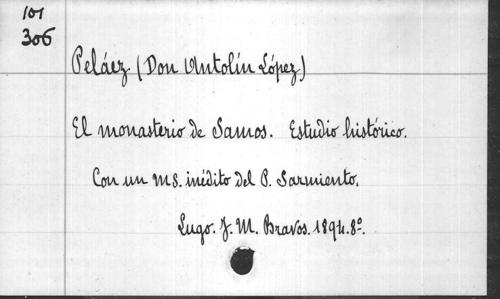 101
306
Peláez (Don Antolín López)
El monasterio de Samos. Estudio histórico.
Con un ms. inédito del P. Sarmiento.
Lugo. J. M. Bravos. 1894. 8º.